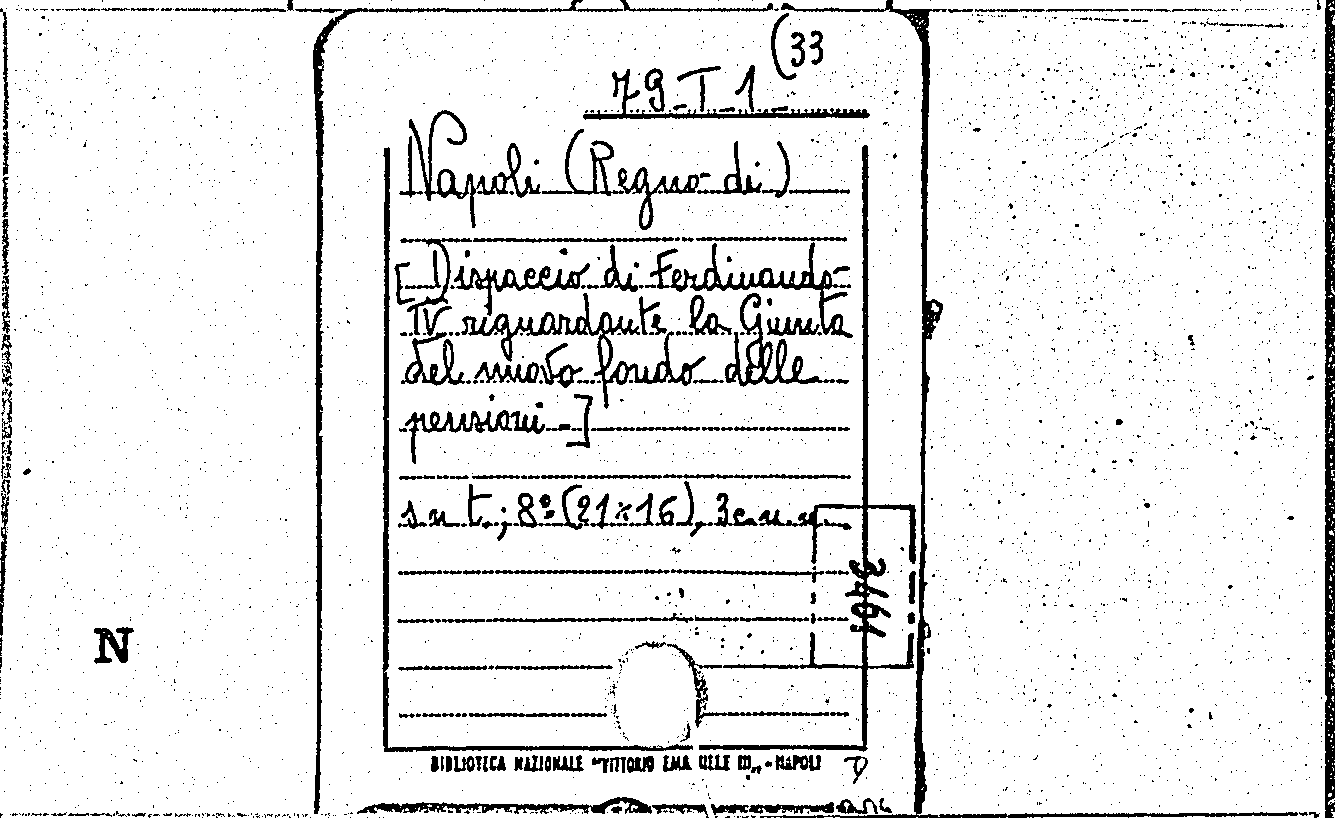 (33
79-T-1-
Napoli (Regno di)
[Dispaccio di Ferdinando
IV riguardante la Giunta
del nuovo fondo delle
pensioni-]
s.n.t.; 8º (21x16), 3c.n.n.
3461
N
BIBLIOTECA NAZIONALE "VITTORIO EMANUELE III" - NAPOLI